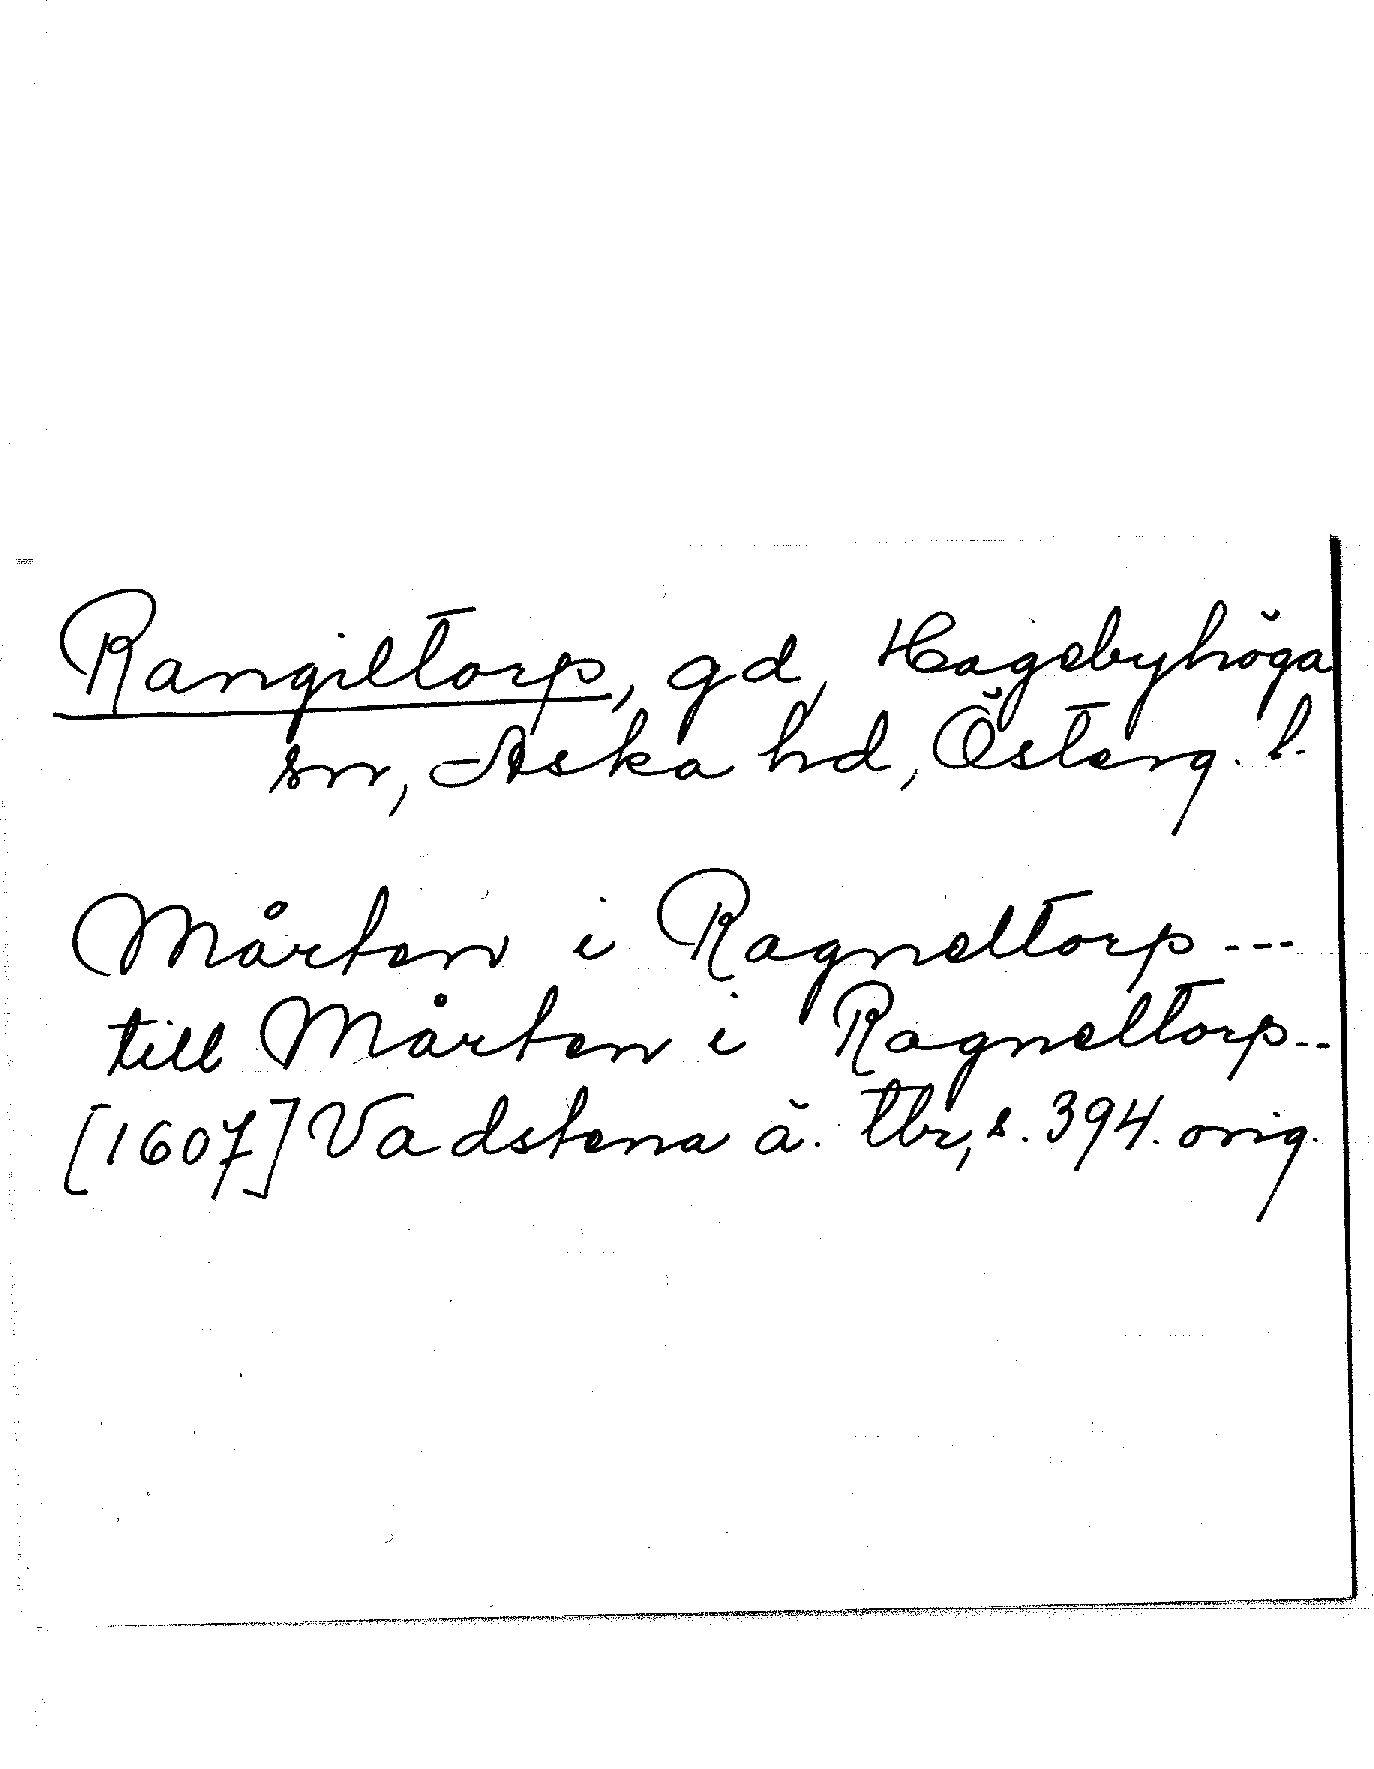 Rangiltorp, gd, Hagebyhöga
sn, Aska hd, Österg. l.
Mårten i Ragneltorp ---
till Mårten i Ragneltorp --
[1607] Vadstena ä. tbr, s. 394. orig.